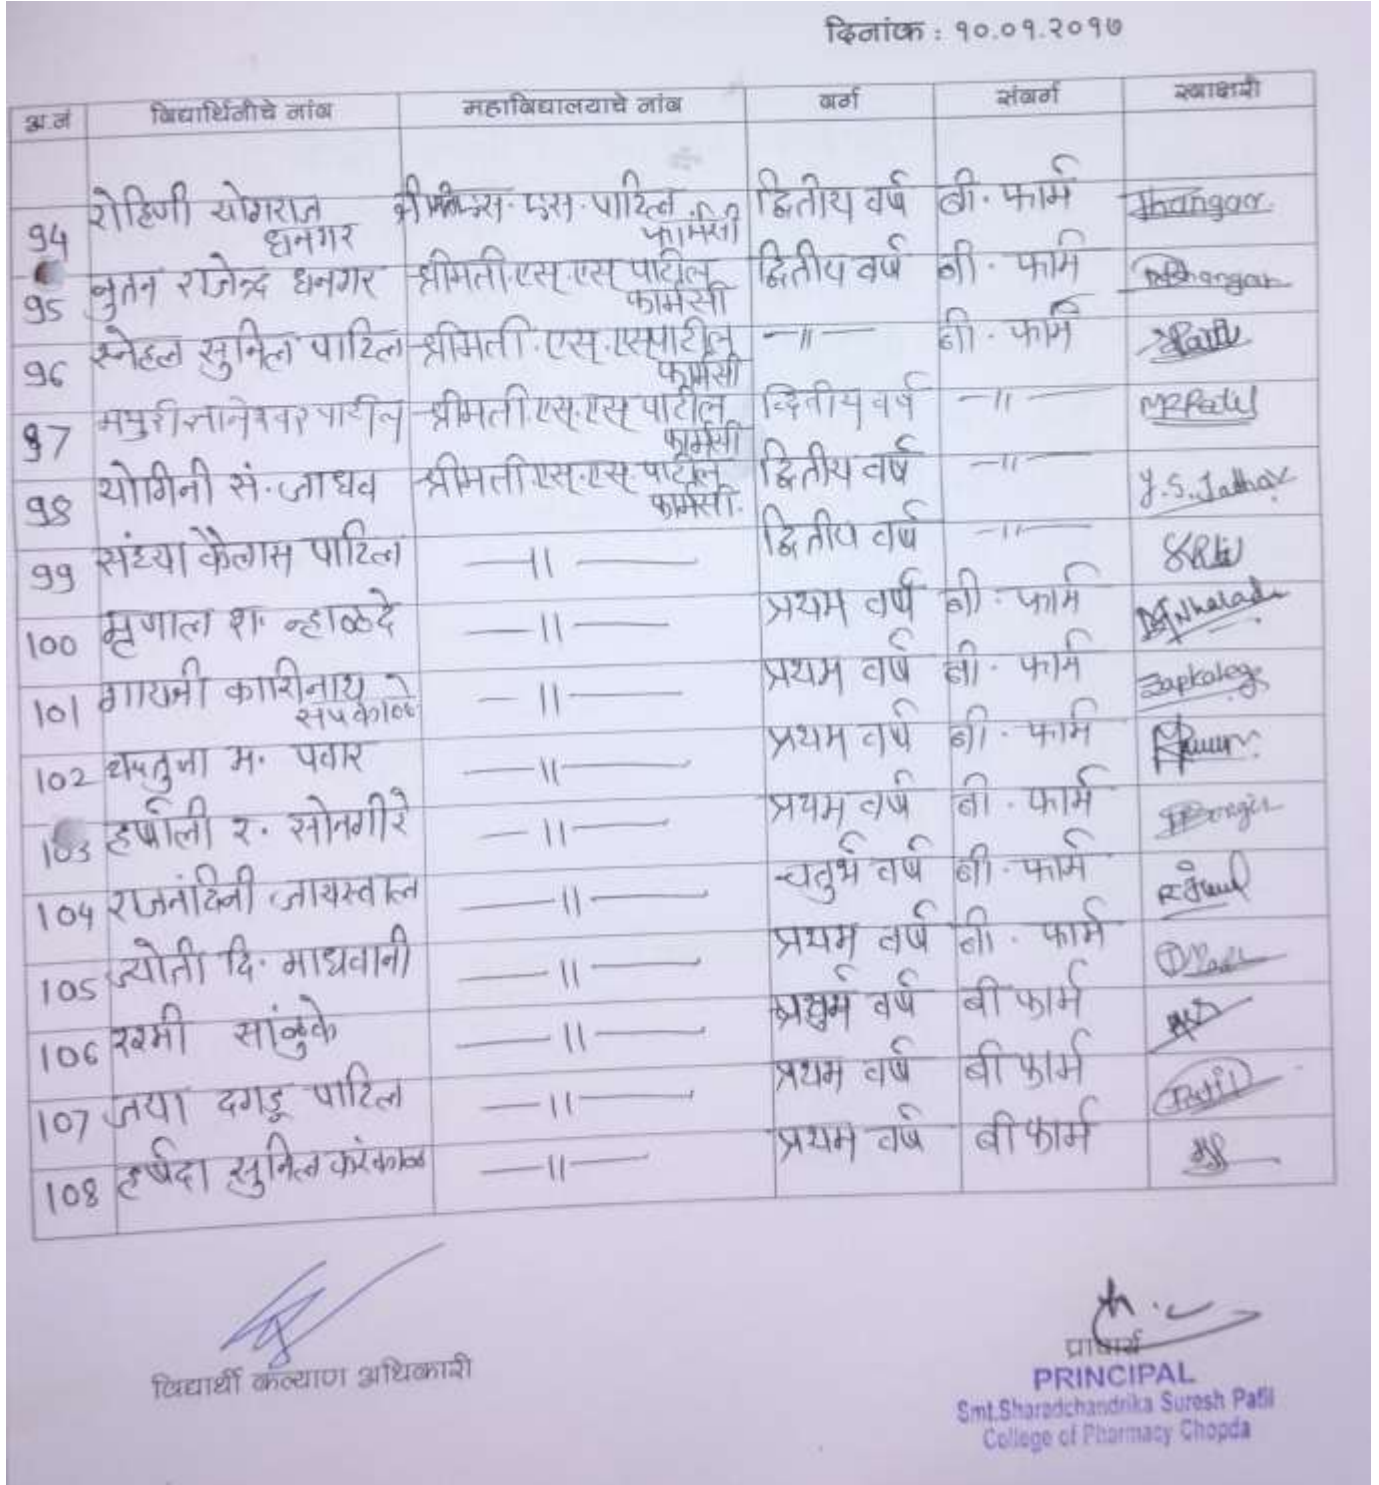 दिनांक : १०.०१.२०१७
अ.नं विद्यार्थिनीचे नांव महाविद्यालयाचे नांव वर्ग संवर्ग स्वाक्षरी
94 रोहिणी योगराज धनगर एस. एस. पाटिल फार्मसी द्वितीय वर्ष बी. फार्म Dhangar
95 नुतन राजेंद्र धनगर श्रीमती.एस.एस पाटील फार्मसी द्वितीय वर्ष बी. फार्म
96 स्नेहल सुनिल पाटिल श्रीमती.एस.एस पाटील फार्मसी —〃— बी. फार्म
97 मयुरी ज्ञानेश्वर पाटील श्रीमती एस.एस पाटील फार्मसी द्वितीय वर्ष —〃— Patil
98 योगिनी सं. जाधव श्रीमती एस.एस. पाटील फार्मसी. द्वितीय वर्ष —〃— Y.S. Jadhav
99 संध्या कैलास पाटिल —〃— द्वितीय वर्ष —〃—
100 मृणाल श. न्हाळदे —〃— प्रथम वर्ष बी. फार्म
101 गायत्री काशिनाथ सपकाळे —〃— प्रथम वर्ष बी. फार्म
102 म. पवार —〃— प्रथम वर्ष बी. फार्म
103 हर्षाली र. सोनगीरे —〃— प्रथम वर्ष बी. फार्म
104 राजनंदिनी जायस्वाल —〃— चतुर्थ वर्ष बी. फार्म
105 ज्योती दि. माधवानी —〃— प्रथम वर्ष बी. फार्म
106 रश्मी सांळुके —〃— प्रथम वर्ष बी फार्म
107 जया दगडू पाटिल —〃— प्रथम वर्ष बी फार्म Patil
108 हर्षदा सुनिल करंकाळ —〃— प्रथम वर्ष बी फार्म
विद्यार्थी कल्याण अधिकारी
प्राचार्य
PRINCIPAL
Smt.Sharadchandrika Suresh Patil
College of Pharmacy Chopda